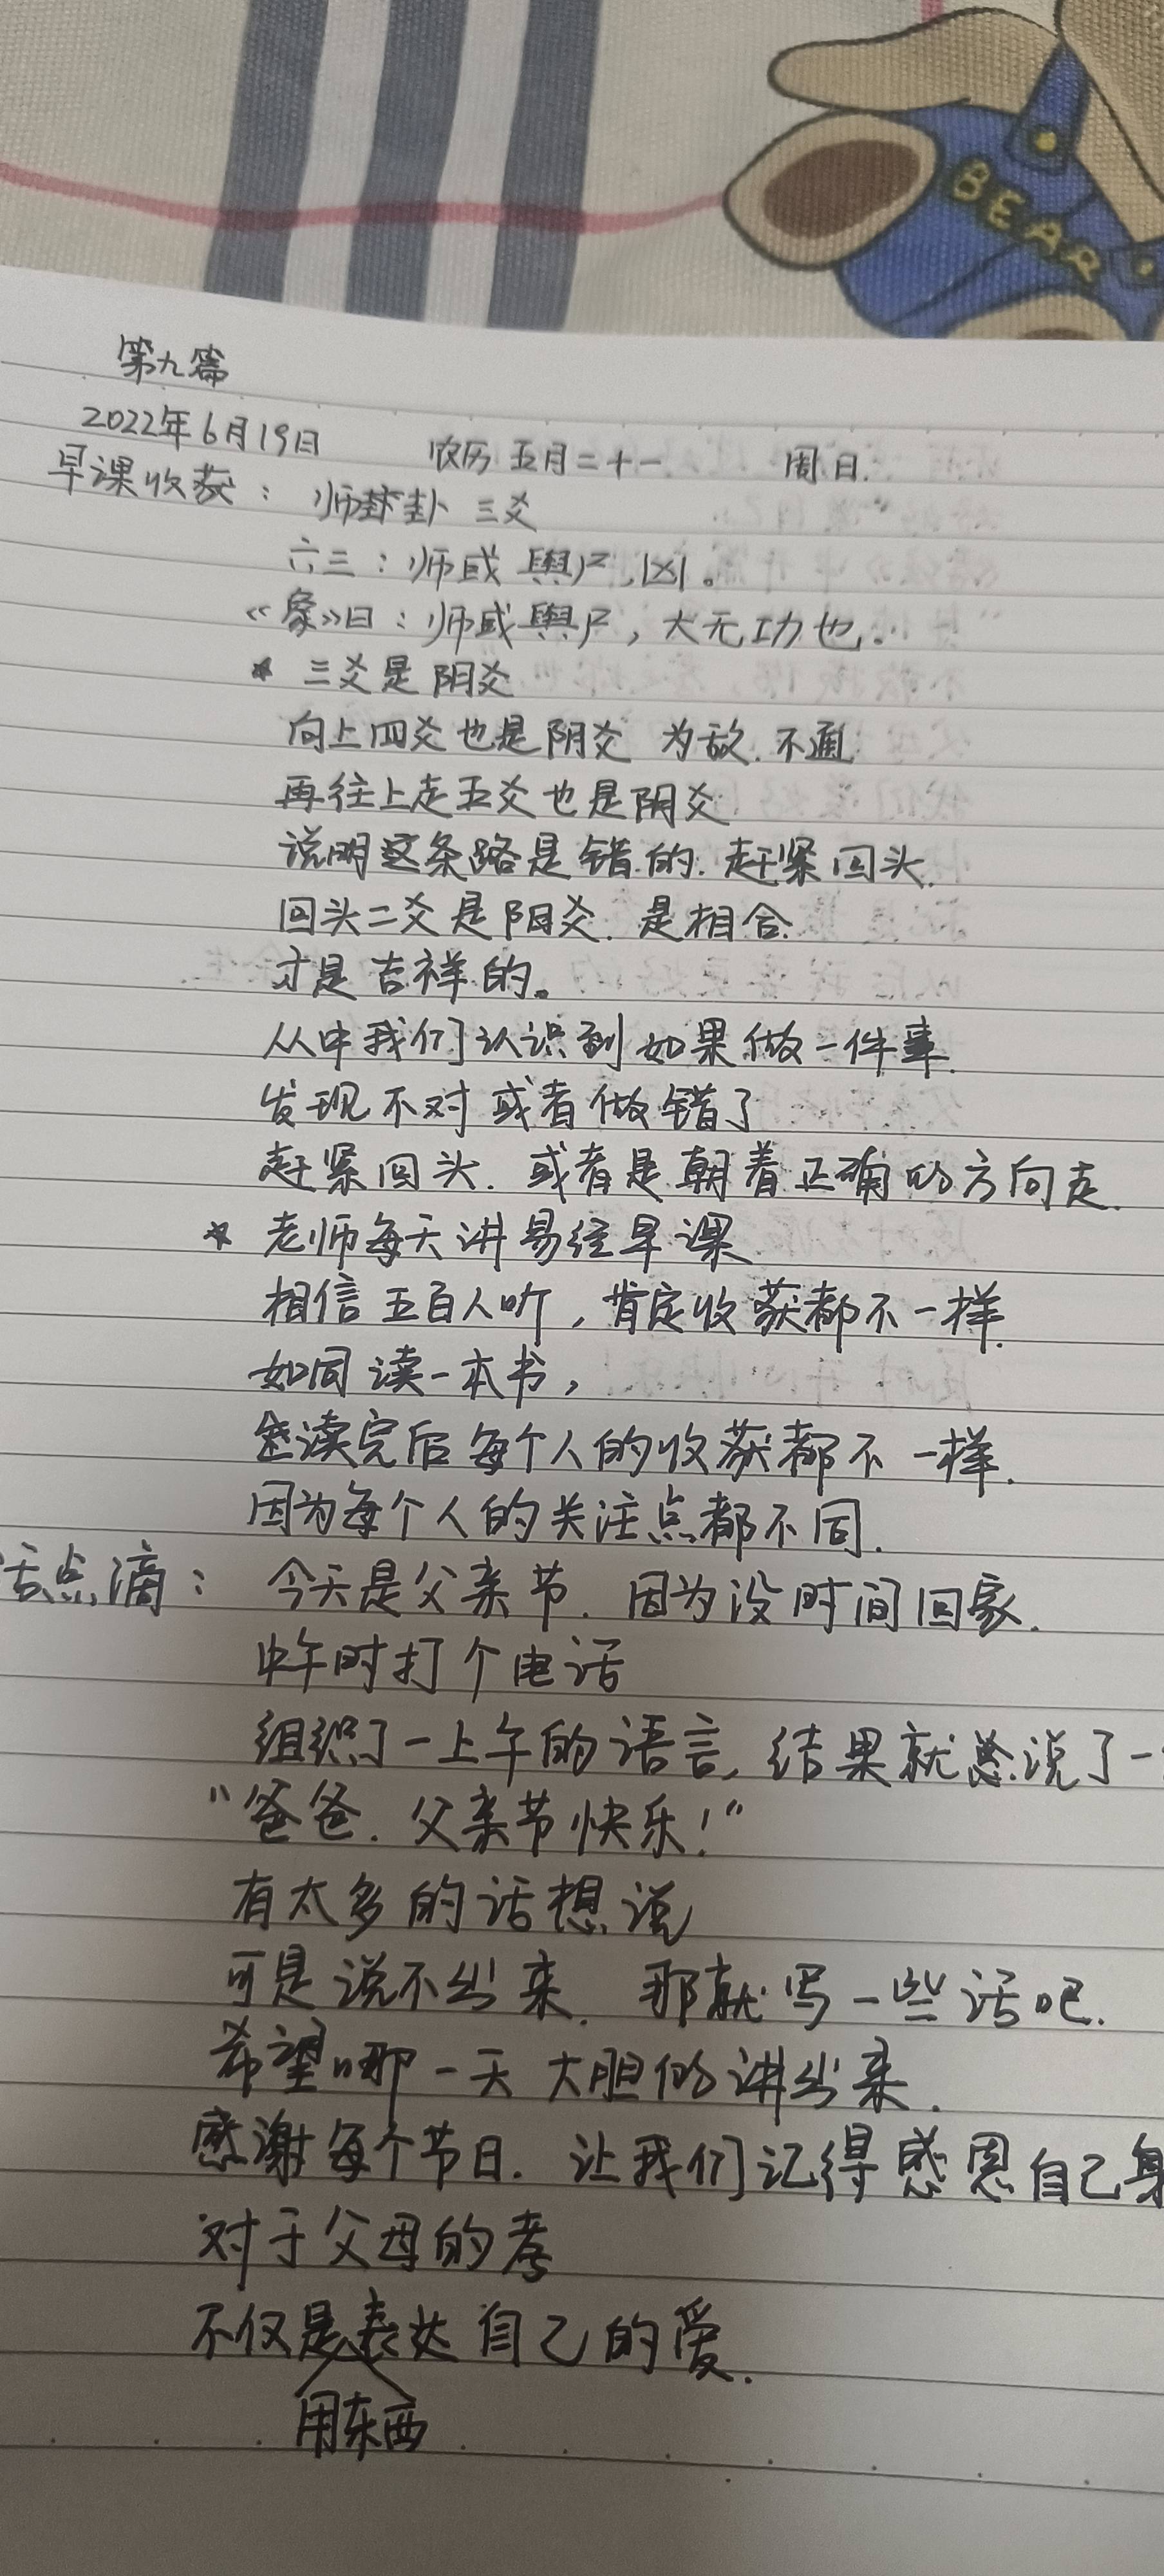 BEAR
第九篇
2022年6月19日 农历五月二十一 周日.
早课收获: 师卦 三爻
六三:师或舆尸,凶。
《象》曰:师或舆尸,大无功也.
* 三爻是阴爻
向上四爻也是阴爻 为敌.不通
再往上走五爻也是阴爻
说明这条路是错的.赶紧回头.
回头二爻是阳爻.是相合.
才是吉祥的。
从中我们认识到如果做一件事.
发现不对或者做错了
赶紧回头.或者是朝着正确的方向走.
* 老师每天讲易经早课
相信五百人听,肯定收获都不一样.
如同读一本书,
读完后每个人的收获都不一样.
因为每个人的关注点都不同.
活点滴: 今天是父亲节.因为没时间回家.
中午时打个电话
组织了一上午的语言,结果就说了一
“爸爸.父亲节快乐!”
有太多的话想说
可是说不出来.那就写一些话吧.
希望哪一天大胆的讲出来.
感谢每个节日.让我们记得感恩自己身
对于父母的孝
不仅是表达自己的爱.
用东西